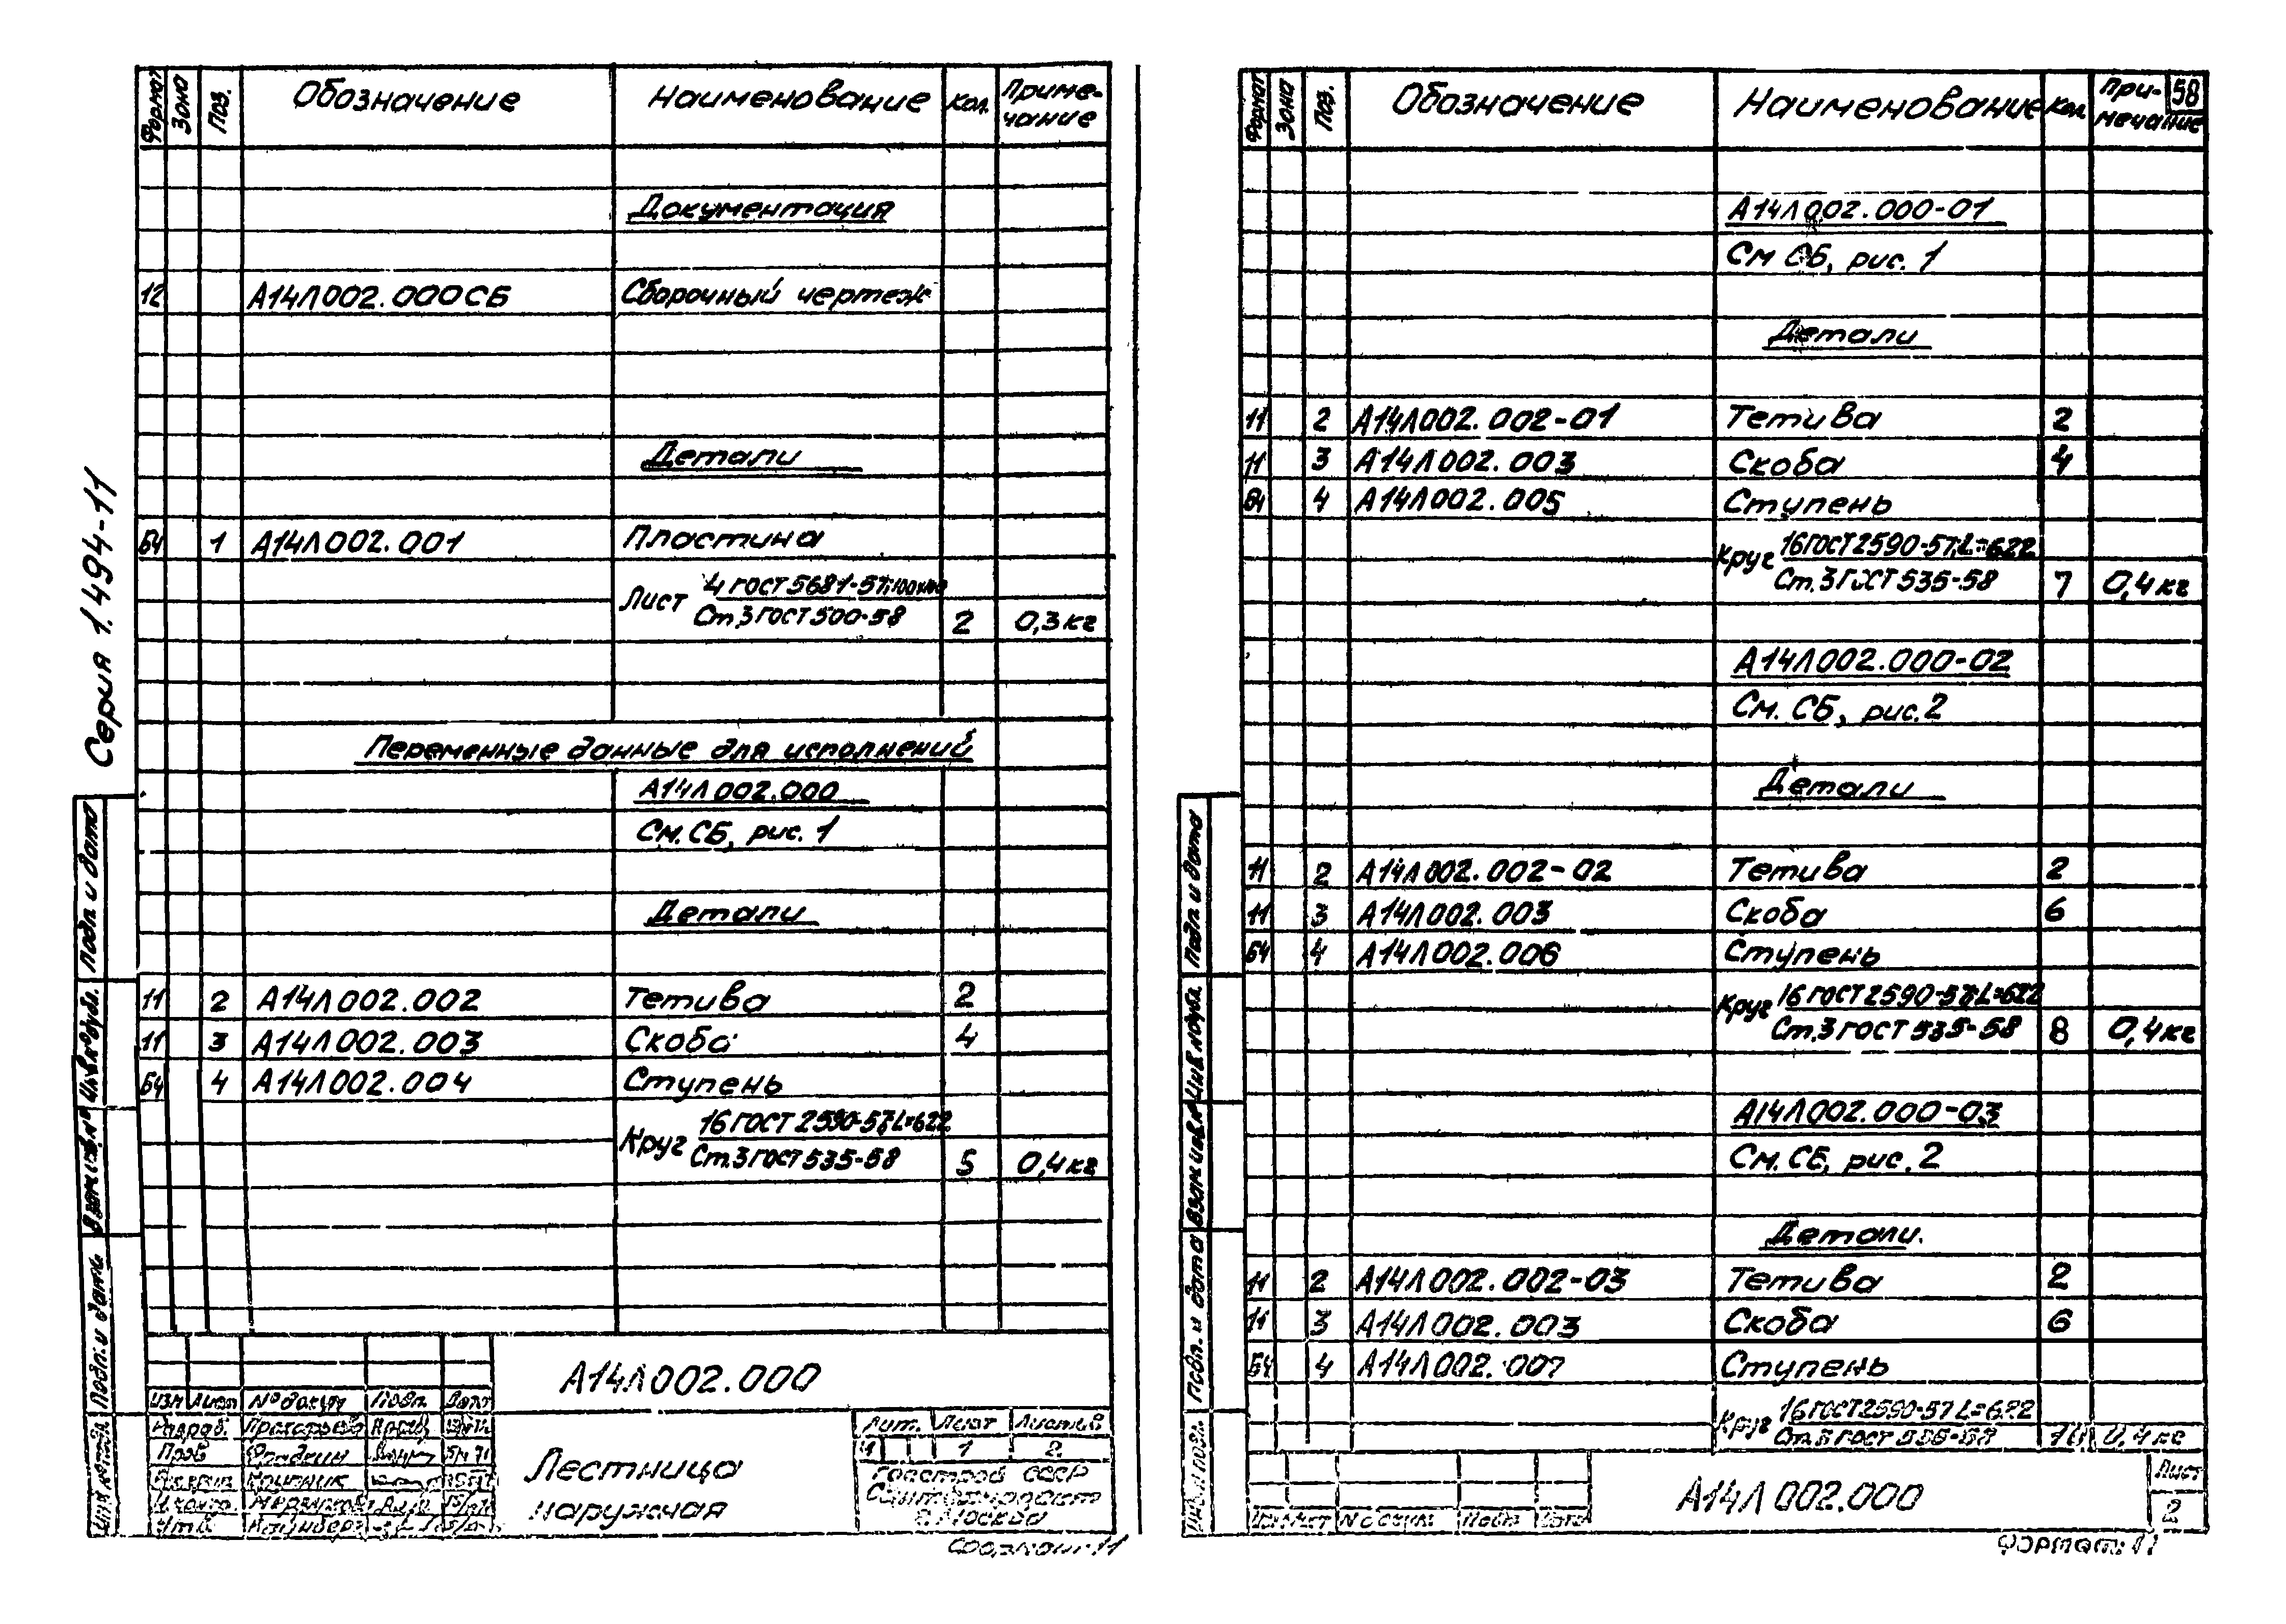 Серия 1.494-11
Формат Зона Поз. Обозначение Наименование Кол. Приме-
чание
Документация
12 А14Л002.000СБ Сборочный чертеж
Детали
БЧ 1 А14Л002.001 Пластина
Лист 4 ГОСТ 5681-57;
Ст.3 ГОСТ 500-58 2 0,3кг
Переменные данные для исполнений
А14Л002.000
См. СБ, рис. 1
Детали
11 2 А14Л002.002 Тетива 2
11 3 А14Л002.003 Скоба 4
БЧ 4 А14Л002.004 Ступень
Круг 16 ГОСТ 2590-57; L=622
Ст.3 ГОСТ 535-58 5 0,4кг
А14Л002.000
Изм Лист № докум Подп. Дата
Разраб.
Пров
Н.контр.
Утв.
Лестница
наружная
Лит. Лист Листов
И 1 2
Госстрой СССР
г. Москва
Формат 11
Подп. и дата
Инв.№дубл.
Взам.инв.№
Подп. и дата
Инв.№подл.
Формат Зона Поз. Обозначение Наименование Кол. При-
мечание
58
А14Л002.000-01
См СБ, рис. 1
Детали
11 2 А14Л002.002-01 Тетива 2
11 3 А14Л002.003 Скоба 4
БЧ 4 А14Л002.005 Ступень
Круг 16 ГОСТ 2590-57; L=622
Ст.3 ГОСТ 535-58 7 0,4кг
А14Л002.000-02
См. СБ, рис. 2
Детали
11 2 А14Л002.002-02 Тетива 2
11 3 А14Л002.003 Скоба 6
БЧ 4 А14Л002.006 Ступень
Круг 16 ГОСТ 2590-57; L=622
Ст.3 ГОСТ 535-58 8 0,4кг
А14Л002.000-03
См. СБ, рис. 2
Детали.
11 2 А14Л002.002-03 Тетива 2
11 3 А14Л002.003 Скоба 6
БЧ 4 А14Л002.007 Ступень
Круг 16 ГОСТ 2590-57 L=622
Ст.3 ГОСТ 535-58 10 0,4кг
А14Л002.000
Изм Лист № докум. Подп. Дата
Лист
2
Формат 11
Подп. и дата
Инв.№дубл.
Взам.инв.№
Подп. и дата
Инв.№подл.